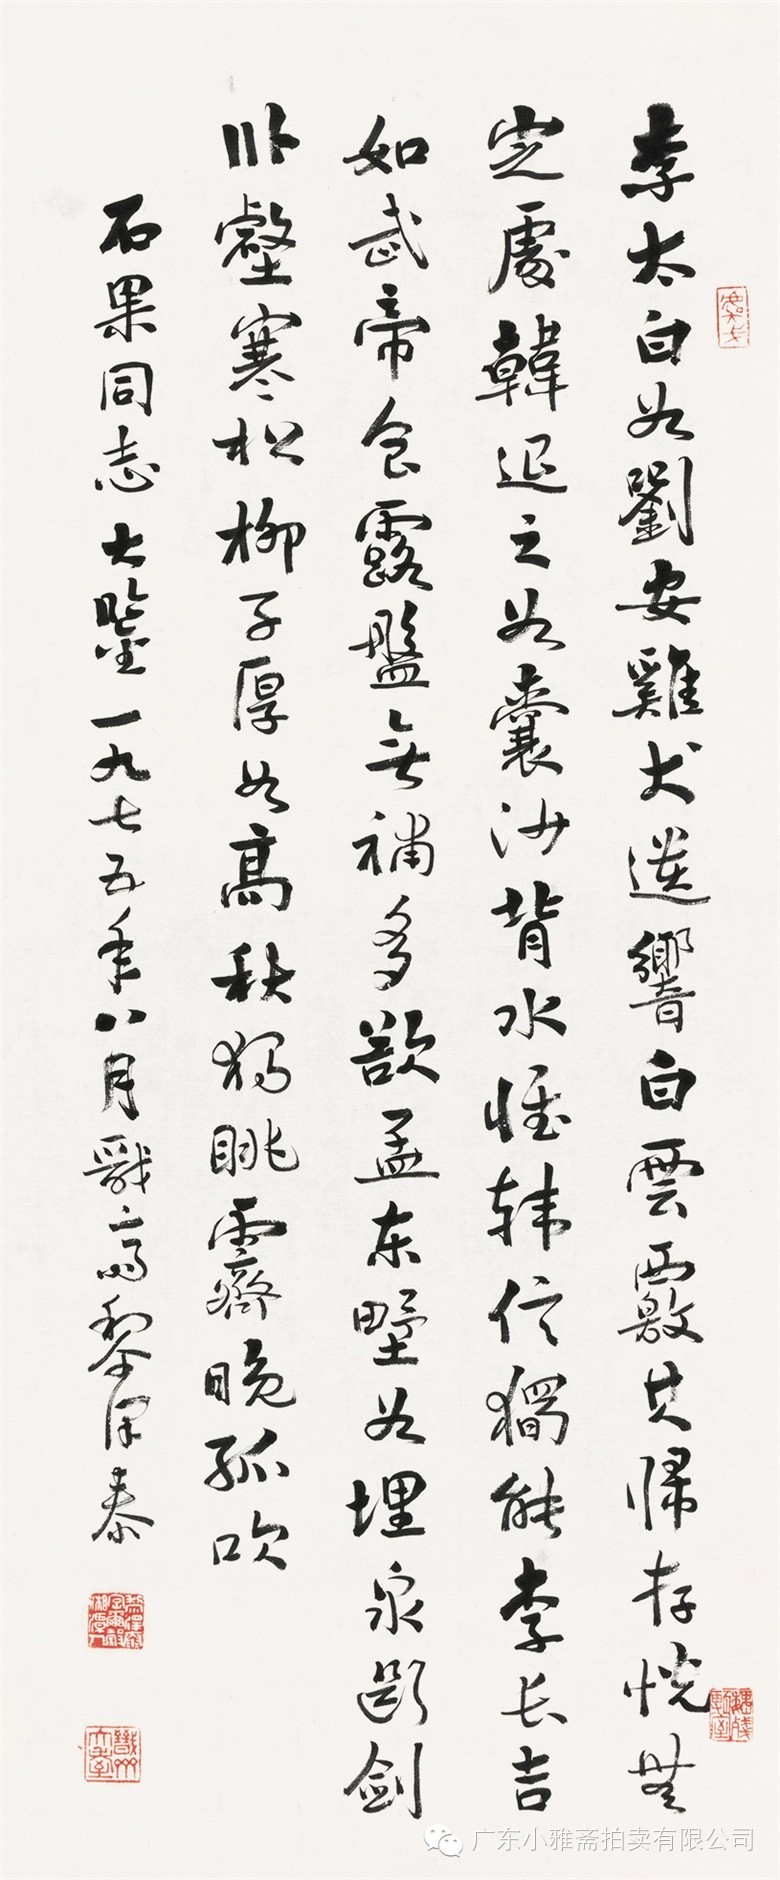 李太白如劉安雞犬遺響白雲覈其歸存恍無
定處韓退之如囊沙背水惟韩信獨能李长吉
如武帝食露盤無補多欲孟东野如埋泉斷劍
卧壑寒松柳子厚如高秋独眺霽晚孤吹
石果同志大鑒一九七五年八月戩齋黎泽泰
广东小雅斋拍卖有限公司